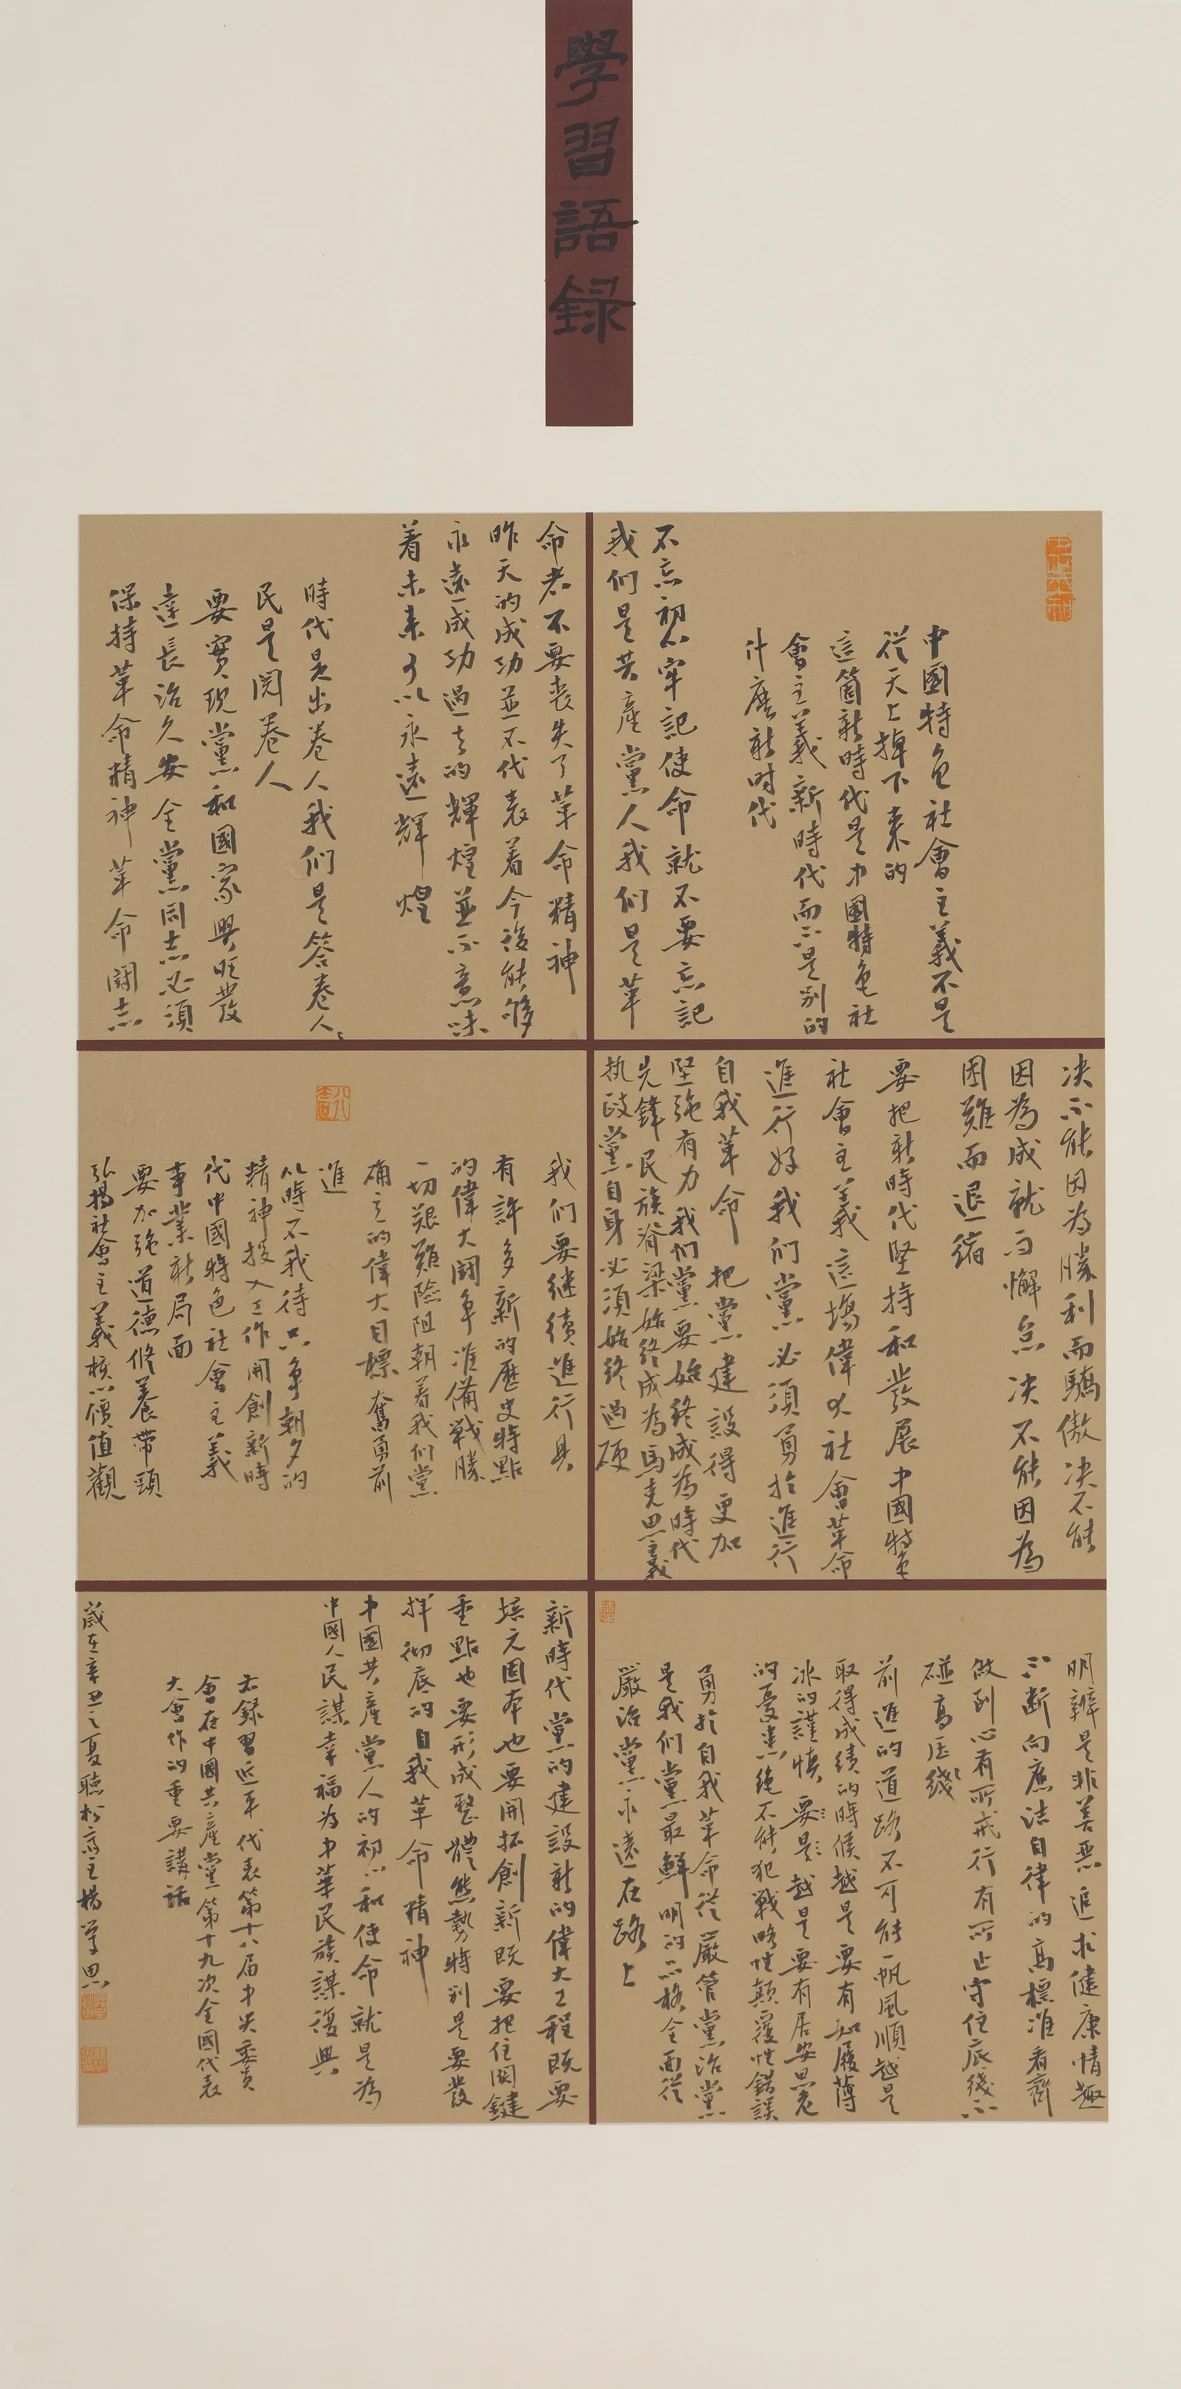 學習語録
中國特色社會主義不是
從天上掉下來的
這箇新時代是中國特色社
會主義新時代而不是别的
什麽新时代
不忘初心牢記使命就不要忘記
我们是共產黨人我们是革
命者不要丧失了革命精神
昨天的成功並不代表着今後能够
永遠成功過去的輝煌並不意味
着未来可以永遠輝煌
時代是出卷人我们是答卷人
民是閲卷人
要實現黨和國家興旺發
達長治久安全黨同志必須
保持革命精神革命鬪志
决不能因為勝利而驕傲决不能
因為成就而懈怠决不能因為
困難而退縮
要把新時代坚持和發展中國特色
社會主義這場偉大社會革命
進行好我们黨必須勇於進行
自我革命把黨建設得更加
坚强有力我们黨要始终成為時代
先鋒民族脊梁始终成為馬克思主義
执政黨自身必須始终過硬
我们要继續進行具
有許多新的歷史特點
的偉大鬪争准備戰勝
一切艱難險阻朝着我们黨
确立的偉大目標奮勇前
進
以時不我待只争朝夕的
精神投入工作開創新時
代中國特色社會主義
事業新局面
要加强道德修養帶頭
弘揚社會主義核心價值觀
明辨是非善惡追求健康情趣
不断向廉洁自律的高標准看齊
做到心有所戒行有所止守住底綫不
碰高压綫
前進的道路不可能一帆風順越是
取得成績的時候越是要有如履薄
冰的謹慎要是越是要有居安思危
的憂患绝不能犯戰略性颠覆性錯誤
勇於自我革命從嚴管黨治黨
是我们黨最鮮明的品格全面從
嚴治黨永遠在路上
新時代黨的建設新的偉大工程既要
培元固本也要開拓創新既要把住関鍵
重點也要形成整體態勢特别是要發
揮彻底的自我革命精神
中國共產黨人的初心和使命就是為
中國人民謀幸福為中華民族謀復興
右録習近平代表第十八届中央委員
會在中國共產黨第十九次全國代表
大會作的重要講話
歲在辛丑之夏聽松齋主楊學思